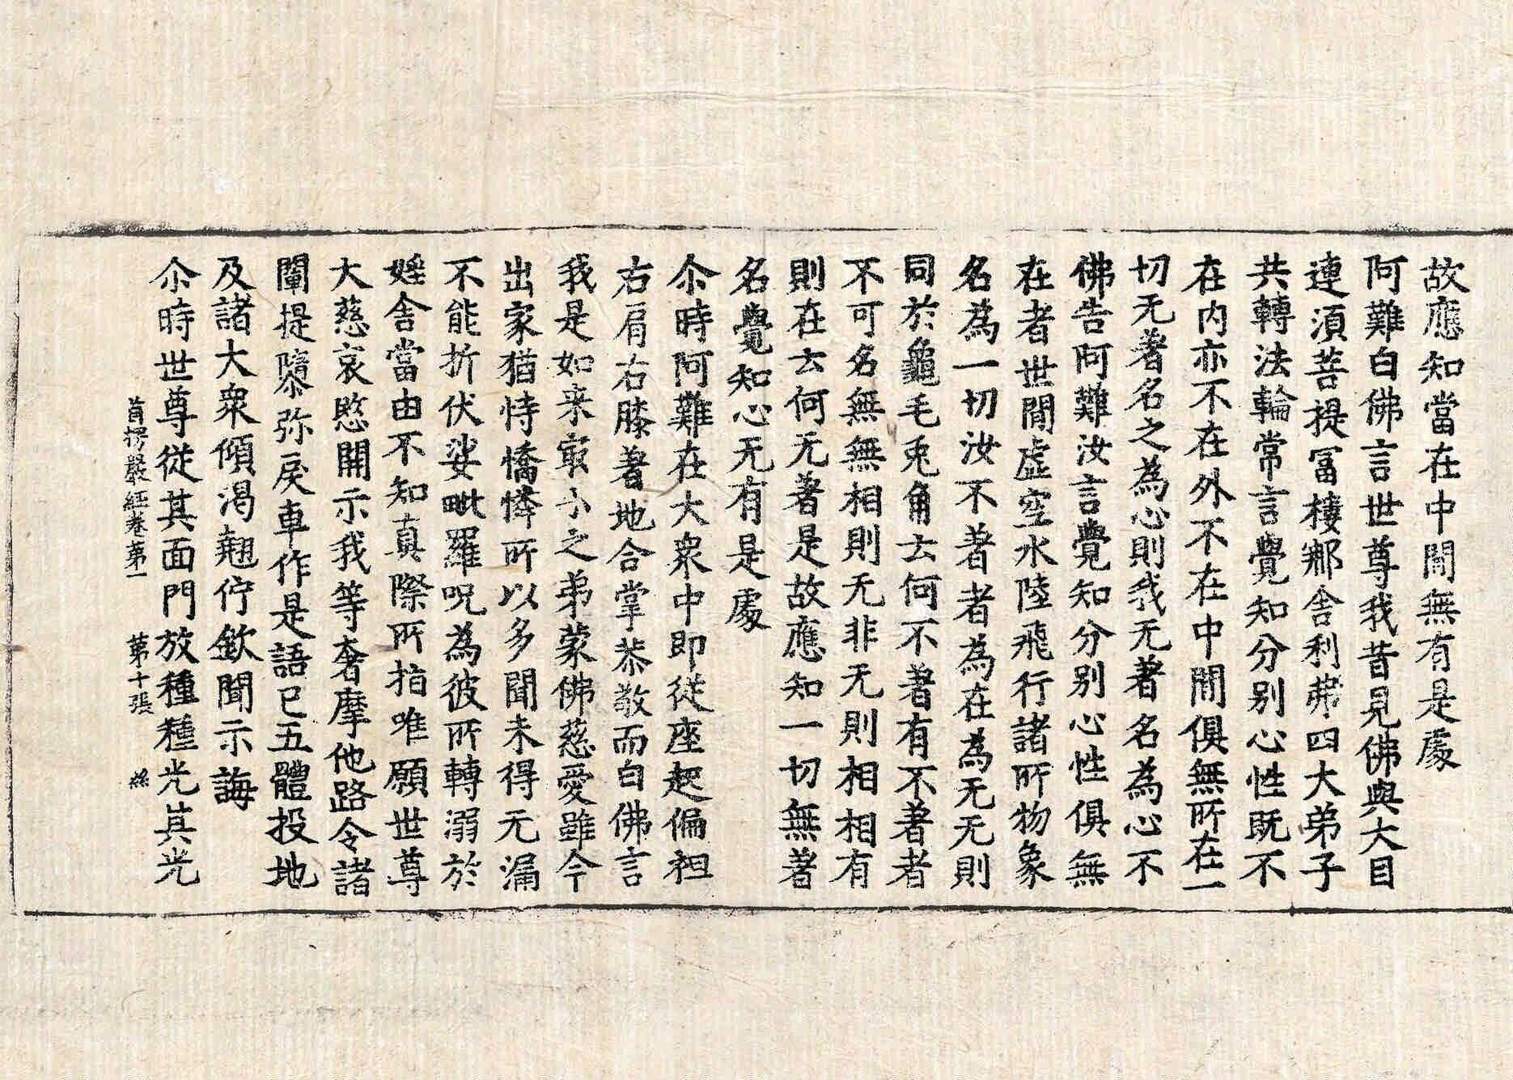 故應知當在中閒無有是處
阿難白佛言世尊我昔見佛與大目
連須菩提冨樓郍舍利弗四大弟子
共轉法輪常言覺知分别心性既不
在内亦不在外不在中閒俱無所在一
切无著名之為心則我无著名為心不
佛告阿難汝言覺知分别心性俱無
在者世閒虛空水陸飛行諸所物象
名為一切汝不著者為在為无无則
同於龜毛兎角云何不著有不著者
不可名無無相則无非无則相相有
則在云何无著是故應知一切無著
名覺知心无有是處
尒時阿難在大衆中即從座起偏袒
右肩右膝著地合掌恭敬而白佛言
我是如来冣小之弟蒙佛慈愛雖今
出家猶恃憍憐所以多聞未得无漏
不能折伏娑毗羅呪為彼所轉溺於
婬舍當由不知真際所指唯願世尊
大慈哀愍開示我等奢摩他路令諸
闡提隳弥戾車作是語已五體投地
及諸大衆傾渴翹佇欽聞示誨
首楞嚴經卷苐一 苐十張
尒時世尊從其面門放種種光其光